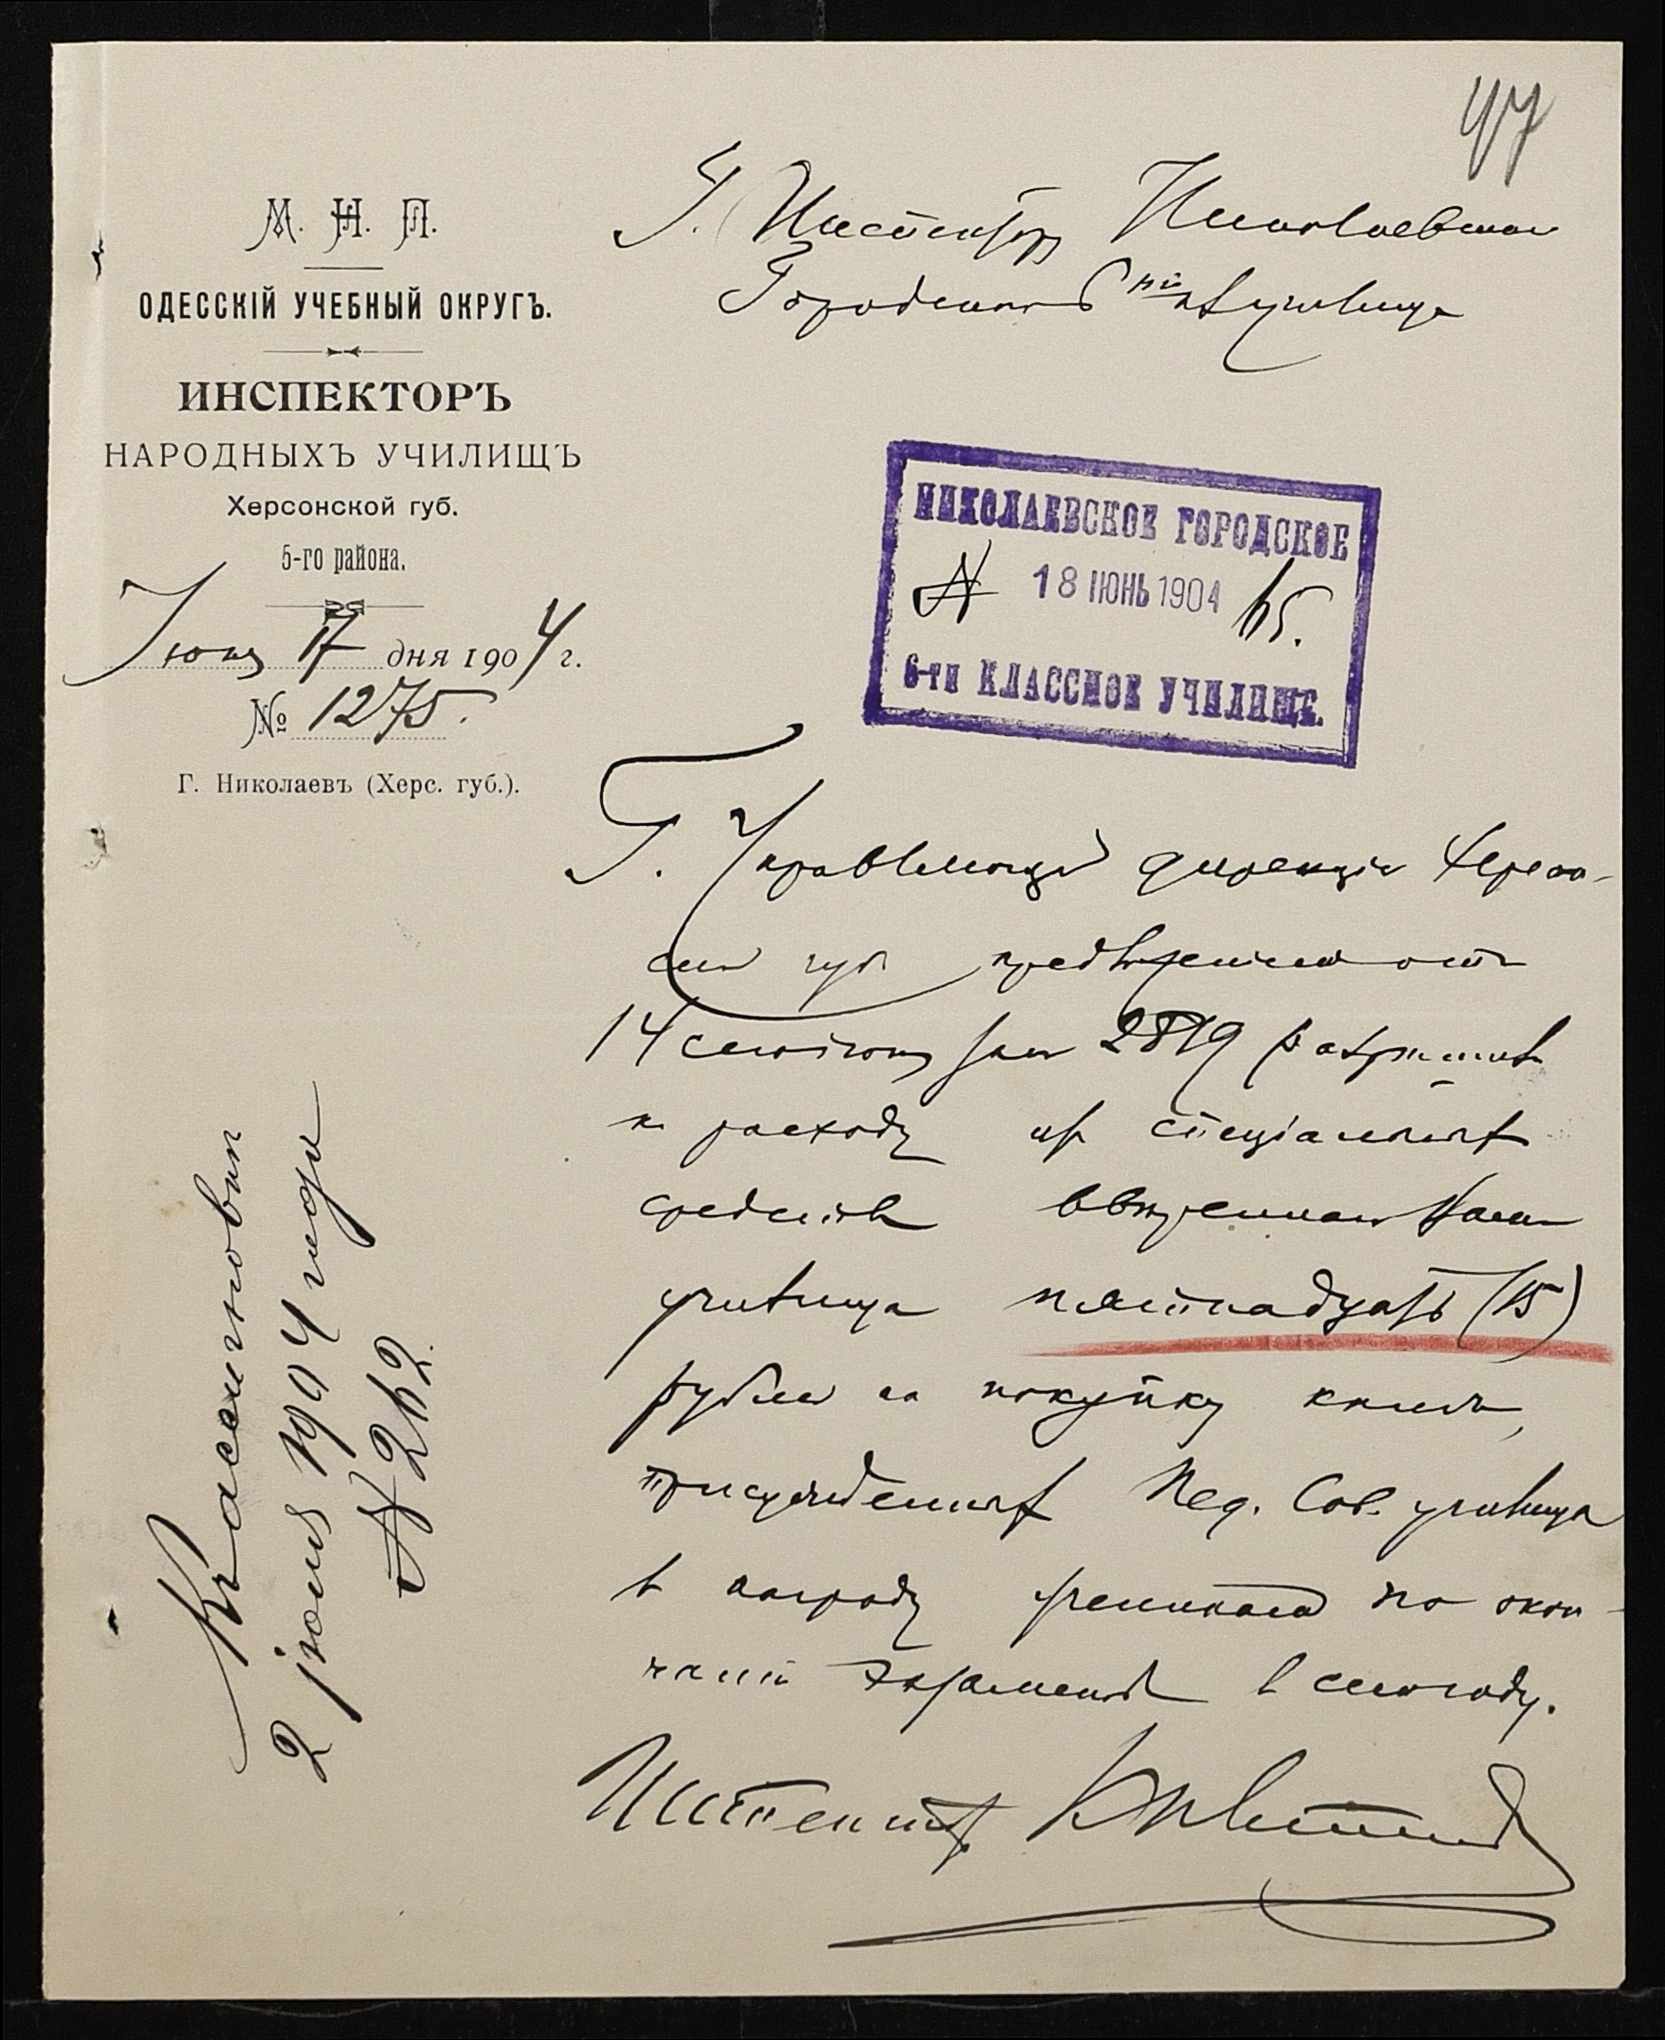 47
М. Н. П.
ОДЕССКІЙ УЧЕБНЫЙ ОКРУГЪ.
ИНСПЕКТОРЪ
НАРОДНЫХЪ УЧИЛИЩЪ
Херсонской губ.
5-го района.
Іюня 17 дня 1904 г.
№ 1275.
Г. Николаевъ (Херс. губ.).
Г. Инспектору Николаевскаго
Городского 6 ти кл училища
НИКОЛАЕВСКОЕ ГОРОДСКОЕ
№ 18 ІЮНЬ 1904
6-ти КЛАССНОЕ УЧИЛИЩЕ.
Г. Управляющій дирекціи Херсон-
ской губ предложеніемъ отъ
14 сего іюня за № 2819 разрѣшилъ
къ расходу изъ спеціальныхъ
средствъ ввѣреннаго Вамъ
училища пятнадцать (15)
рублей на покупку книгъ,
присужденныхъ Пед. Сов. училища
въ награду ученикамъ по окон-
чаніи экзаменовъ въ семъ году.
Инспекторъ
2 іюня 1904 года